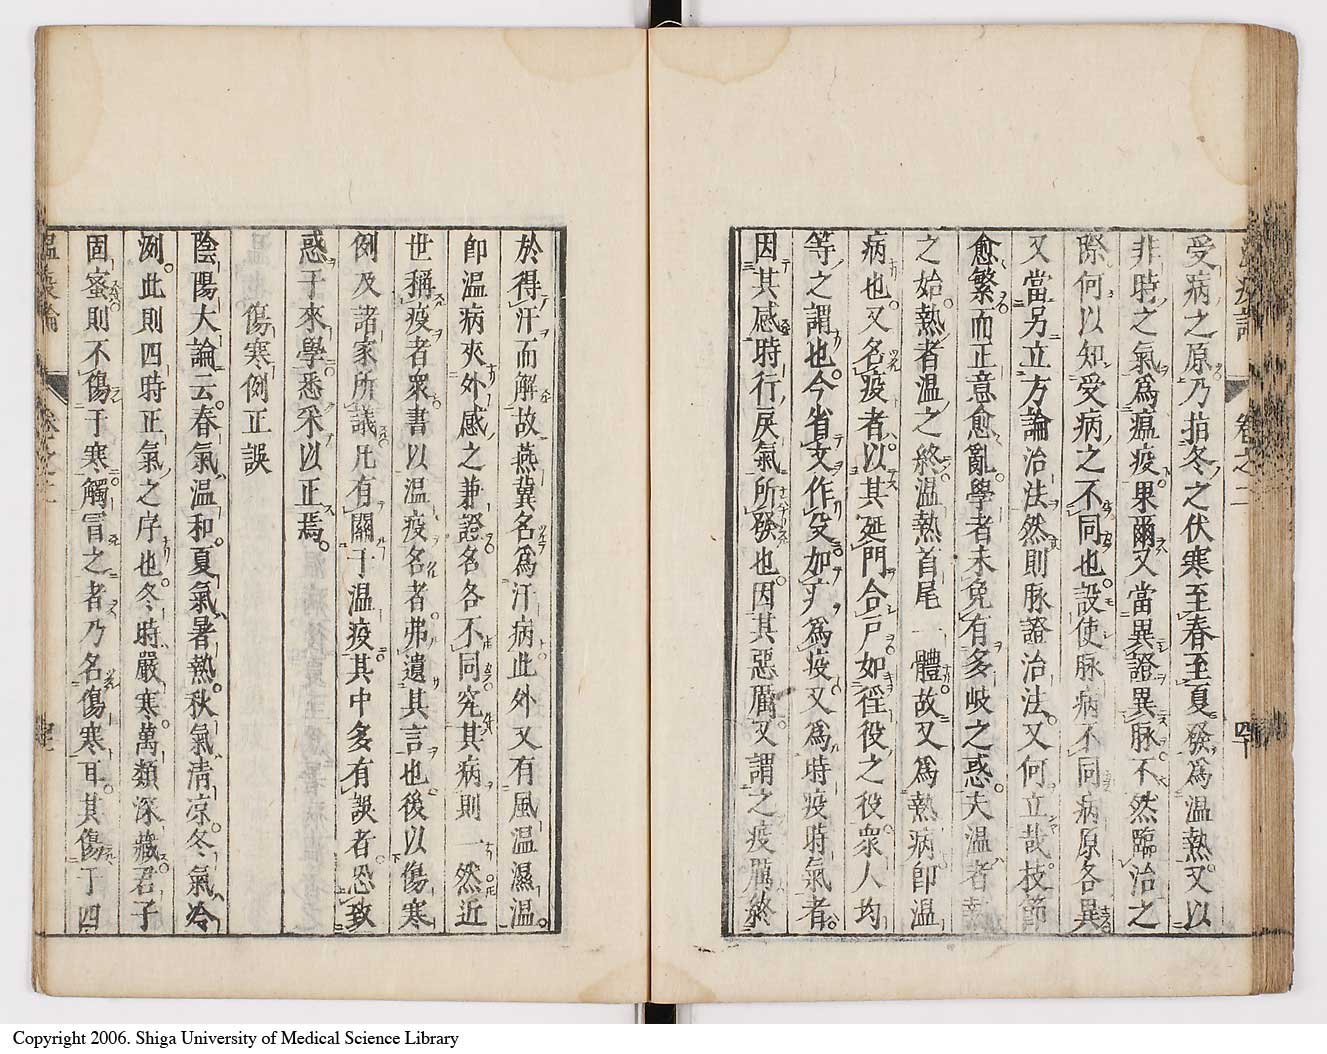 受病之原乃指冬之伏寒至春至夏發爲温熱又以
非時之氣爲瘟疫果爾又當異證異脉不然臨治之
際何以知受病之不同也設使脉病不同病原各異
又當另立方論治法然則脉證治法又何立哉枝節
愈繁而正意愈亂學者未免有多岐之惑夫温者熱
之始熱者温之終温熱首尾一體故又爲熱病卽温
病也又名疫者以其延門合戸如徭役之役衆人均
等之謂也今省文作殳如疒爲疫又爲時疫時氣者
因其感時行戾氣所發也因其惡厲又謂之疫厲終
於得汗而解故燕冀名爲汗病此外又有風温濕温
卽温病夾外感之兼證名各不同究其病則一然近
世稱疫者衆書以温疫名者弗遺其言也後以傷寒
例及諸家所議凡有關于温疫其中多有誤者恐致
惑于來學悉采以正焉
傷寒例正誤
陰陽大論云春氣温和夏氣暑熱秋氣清凉冬氣冷
冽此則四時正氣之序也冬時嚴寒萬類深藏君子
固蜜則不傷于寒觸冒之者乃名傷寒耳其傷于四
卷之二
Copyright 2006. Shiga University of Medical Science Library